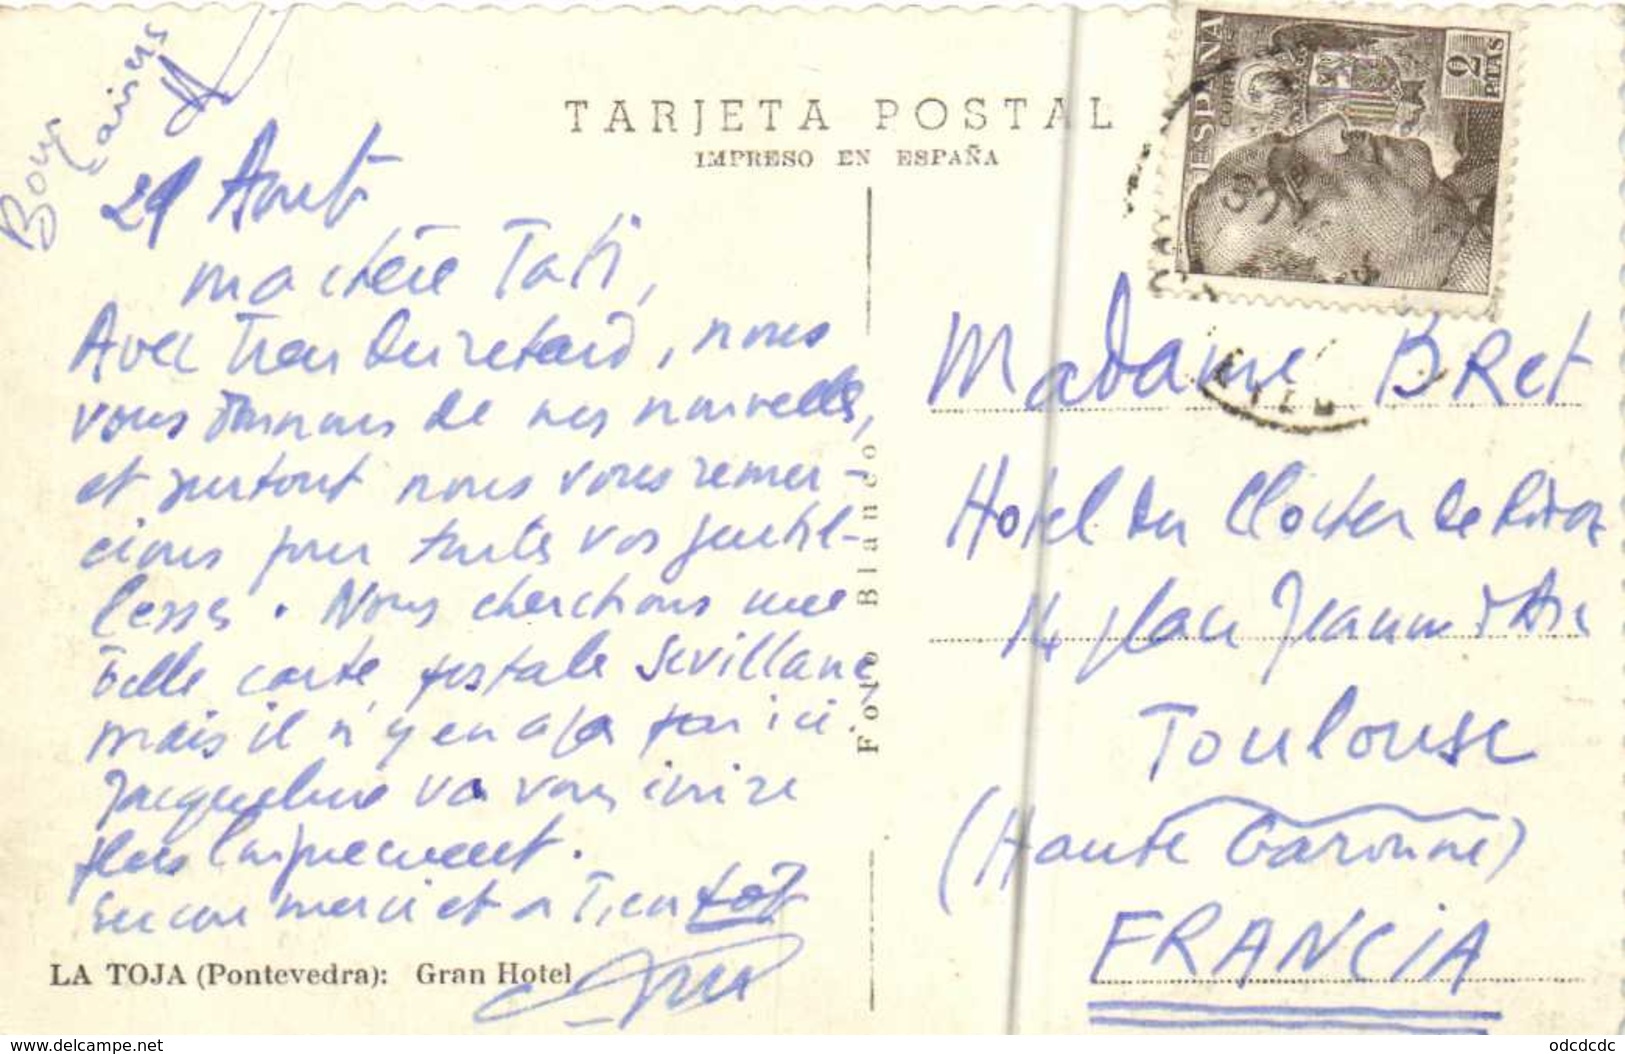 Bons
baisers
29 Aout
ma chère Tati,
Avec bien du retard, nous
vous donnons de nos nouvelles,
et surtout nous vous remer-
cions pour toutes vos gentil-
lesses. Nous cherchons une
belle carte postale Sevillane
mais il n'y en a pas par ici.
Jacqueline va vous écrire
plus longuement.
Encore merci et a bientôt
LA TOJA (Pontevedra): Gran Hotel
TARJETA POSTAL
IMPRESO EN ESPAÑA
Foto Blanco
ESPAÑA
CORREOS
2
PTAS
Madame BRet
Hotel du Clocher de Rodez
14 place Jeanne d'Arc
Toulouse
(Haute Garonne)
FRANCIA
www.delcampe.net
odcdcdc